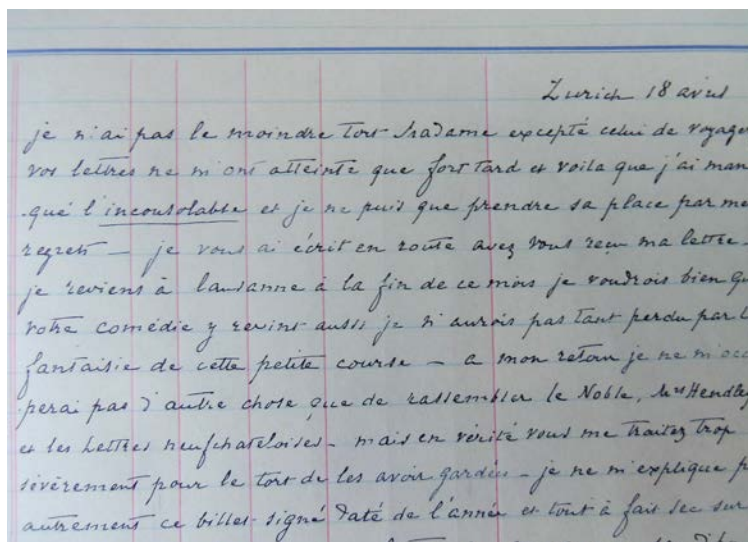 Zurich 18 avril
je n'ai pas le moindre tort Madame excepté celui de voyager
vos lettres ne m'ont atteinte que fort tard et voila que j'ai man
qué l'inconsolable et je ne puis que prendre sa place par me
regrets — je vous ai écrit en route avez vous reçu ma lettre —
je reviens à lausanne à la fin de ce mois je voudrois bien qu
votre comédie y revint aussi je n'aurois pas tant perdu par l
fantaisie de cette petite course — a mon retour je ne m'occ
perai pas d'autre chose que de rassembler le Noble, Mrs Hendley
et les Lettres neufchateloises — mais en vérité vous me traitez trop
sévèrement pour le tort de les avoir gardées — je ne m'explique p
autrement ce billet signé daté de l'année et tout à fait sec sur